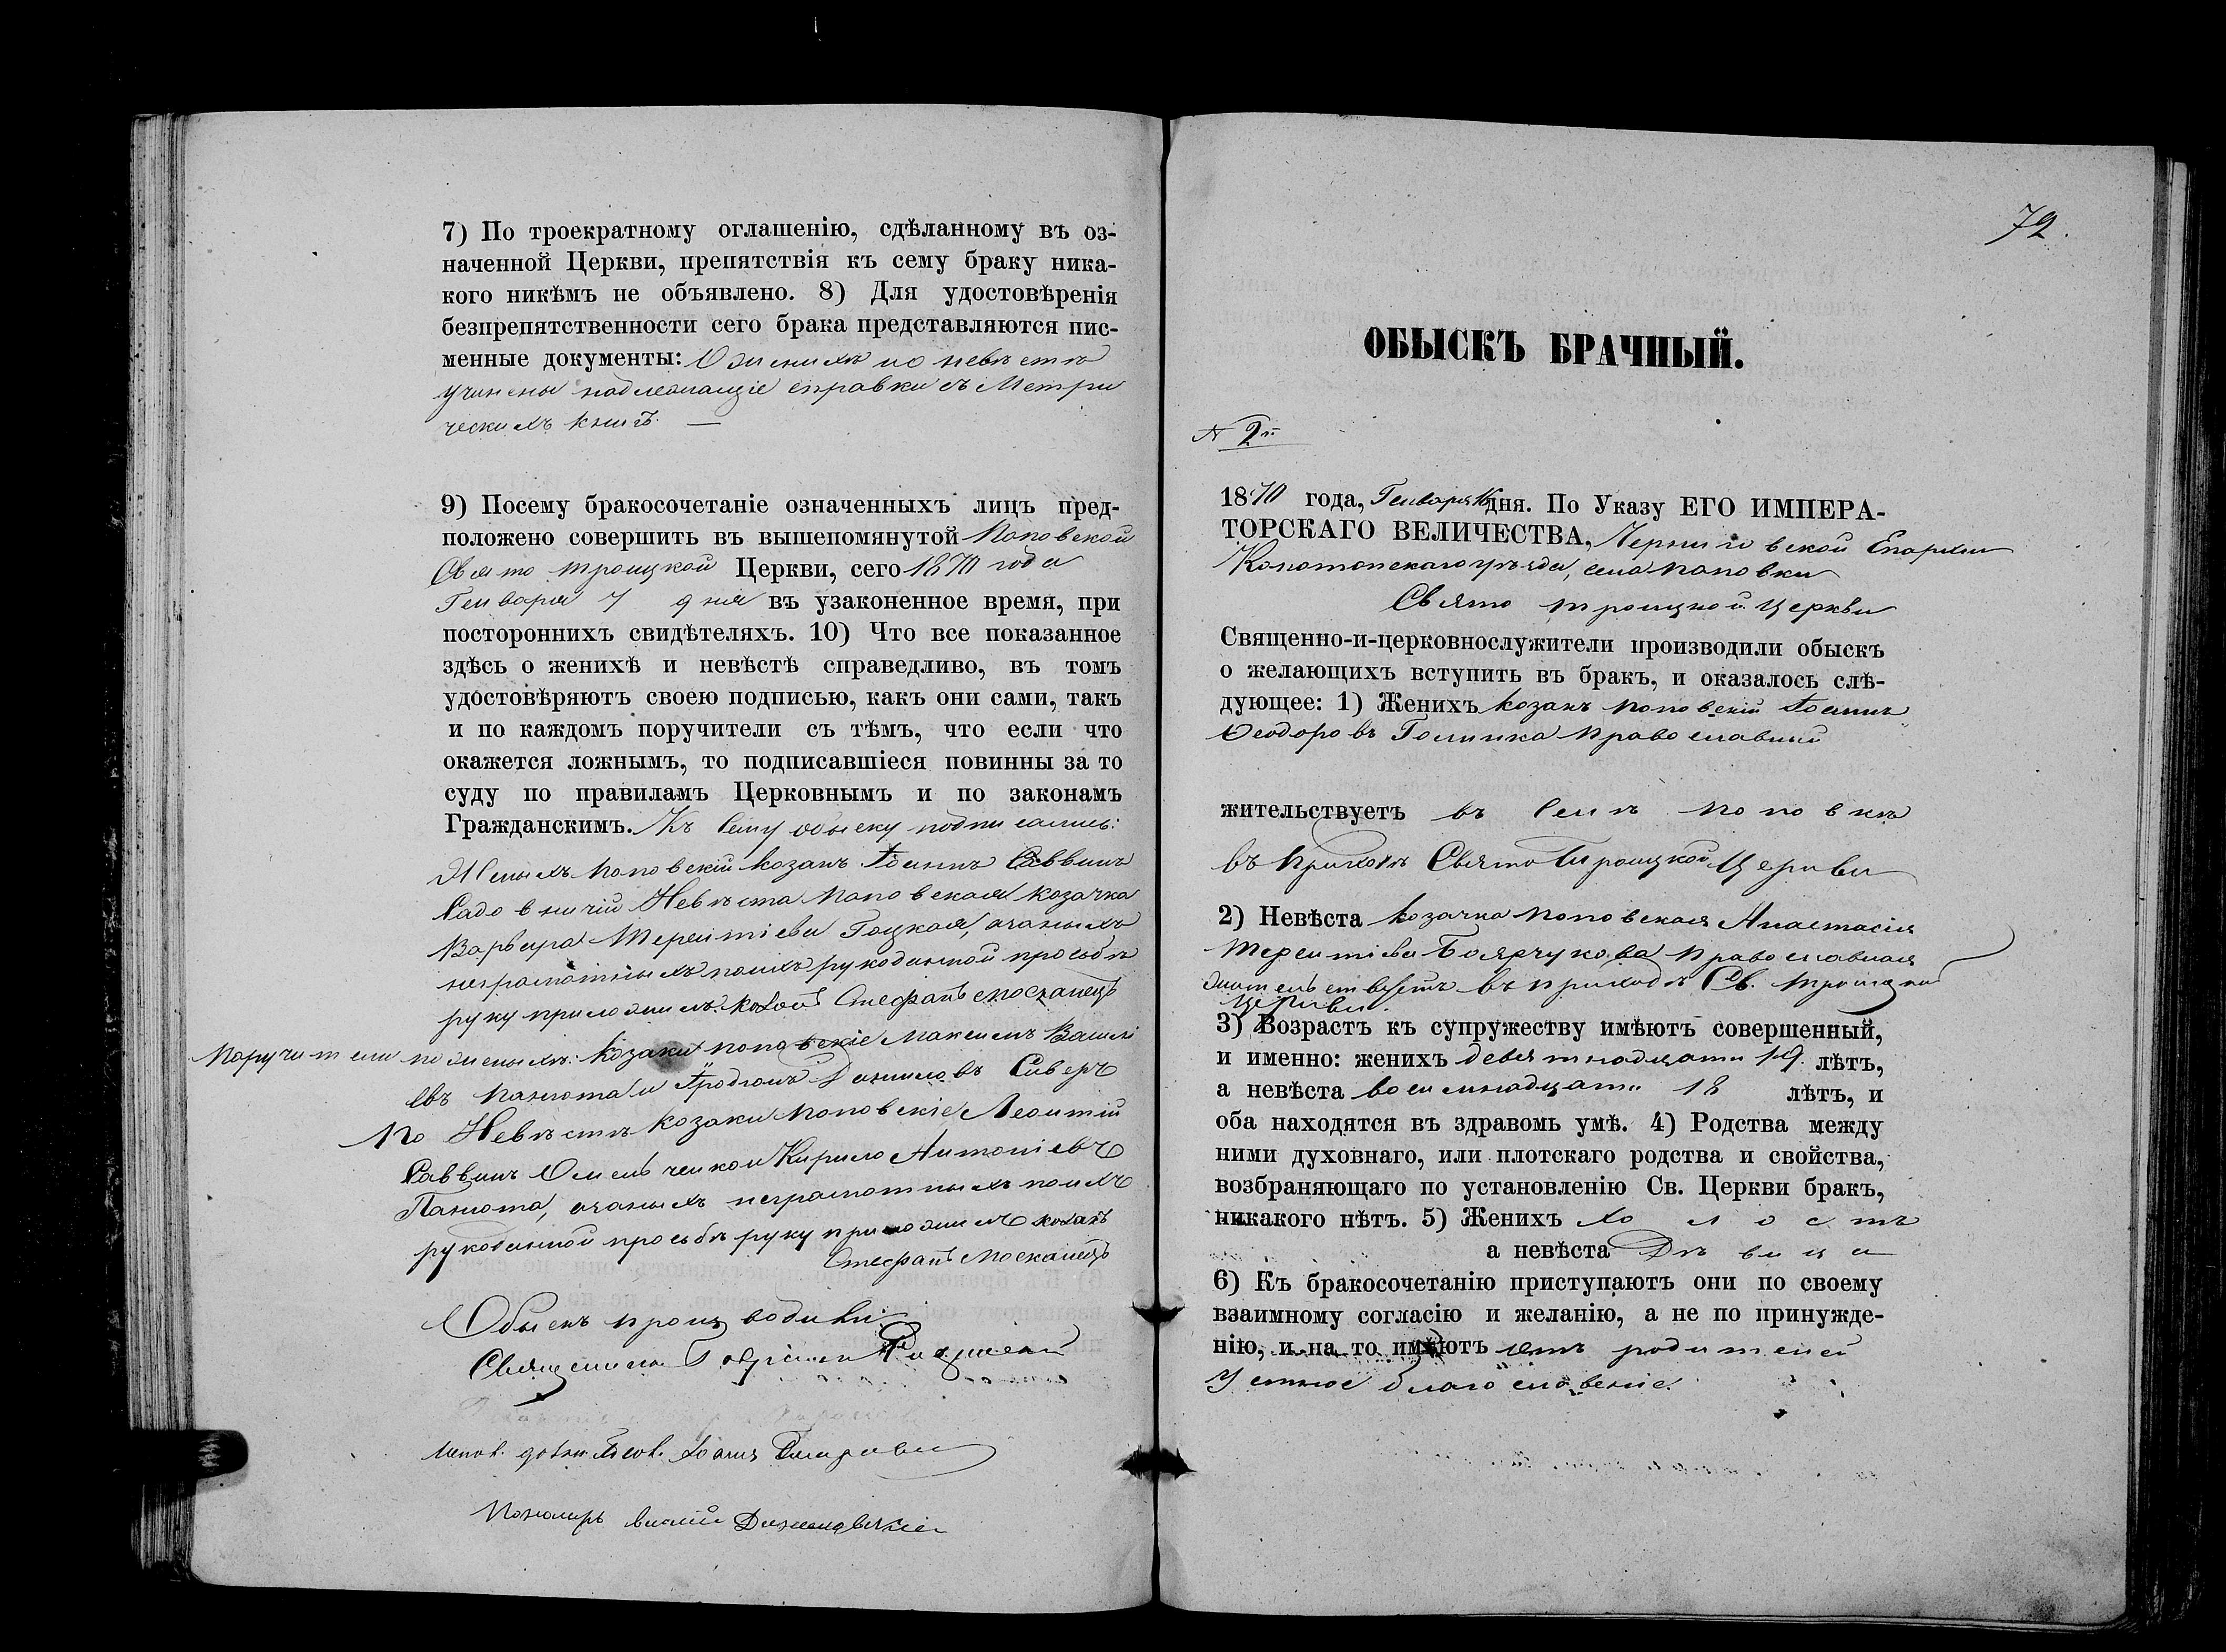 7) По троекратному оглашенію, сдѣланному въ оз-
наченной Церкви, препятствія къ сему браку ника-
кого никѣмъ не объявлено. 8) Для удостовѣренія
безпрепятственности сего брака представляются пис-
менные документы: О женихѣ и о невѣстѣ
учинены надлежащіе справки съ Метри
ческихъ книгъ. —
9) Посему бракосочетаніе означенныхъ лицъ пред-
положено совершить въ вышепомянутой Поповской
Свято троицкой Церкви, сего 1870 года
Генваря 7 дня въ узаконенное время, при
постороннихъ свидѣтеляхъ. 10) Что все показанное
здѣсь о женихѣ и невѣстѣ справедливо, въ томъ
удостовѣряютъ своею подписью, какъ они сами, такъ
и по каждомъ поручители съ тѣмъ, что если что
окажется ложнымъ, то подписавшіеся повинны за то
суду по правиламъ Церковнымъ и по законамъ
Гражданскимъ. Къ Сему обыску подписались:
Женыхъ поповскій козакъ Іоаннъ Саввинъ
Садовничій Невѣста поповская козачка
Варвара Терентіева Гоцкая, а за ныхъ
неграмотныхъ по ихъ рукоданной просьбѣ
руку приложилъ козакъ Стефанъ Москалецъ
Поручители по женыхѣ: козаки поповскіе Максимъ Васили
евъ Панюта и Иродіонъ Даниловъ Сиверъ
По Невѣстѣ козаки поповскіе Леонтій
Саввинъ Омельченко и Кирило Антоніевъ
Панюта, а за ныхъ неграмотныхъ по ихъ
рукоданной просьбѣ руку приложилъ козакъ
Стефанъ Москалецъ
Обыскъ производили:
Священникъ
Пономарь
72.
ОБЫСКЪ БРАЧНЫЙ.
N 2й
1870 года, Генваря 16 дня. По Указу ЕГО ИМПЕРА-
ТОРСКАГО ВЕЛИЧЕСТВА, Черниговской Епархіи
Конотопскаго уѣзда, села поповки
Свято троицкой Церкви
Священно-и-церковнослужители производили обыскъ
о желающихъ вступить въ бракъ, и оказалось слѣ-
дующее: 1) Женихъ козакъ поповскій Іоаннъ
Феодоровъ православный
жительствуетъ въ Селѣ поповкѣ
въ приходѣ Свято Троицкой Церкви
2) Невѣста козачка поповская Анастасія
Терентіева Боярчукова православная
жительствуетъ въ приходѣ Св. троицкой
церкви
3) Возрастъ къ супружеству имѣютъ совершенный,
и именно: женихъ девятнадцати 19 лѣтъ,
а невѣста восемнадцати 18 лѣтъ, и
оба находятся въ здравомъ умѣ. 4) Родства между
ними духовнаго, или плотскаго родства и свойства,
возбраняющаго по установленію Св. Церкви бракъ,
никакого нѣтъ. 5) Женихъ холостъ
а невѣста Дѣвица
6) Къ бракосочетанію приступаютъ они по своему
взаимному согласію и желанію, а не по принужде-
нію, и на то имѣютъ отъ родителей
устное благословеніе.